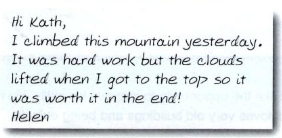 Hi Kath,
I climbed this mountain yesterday.
It was hard work but the clouds
lifted when I got to the top so it
was worth it in the end!
Helen